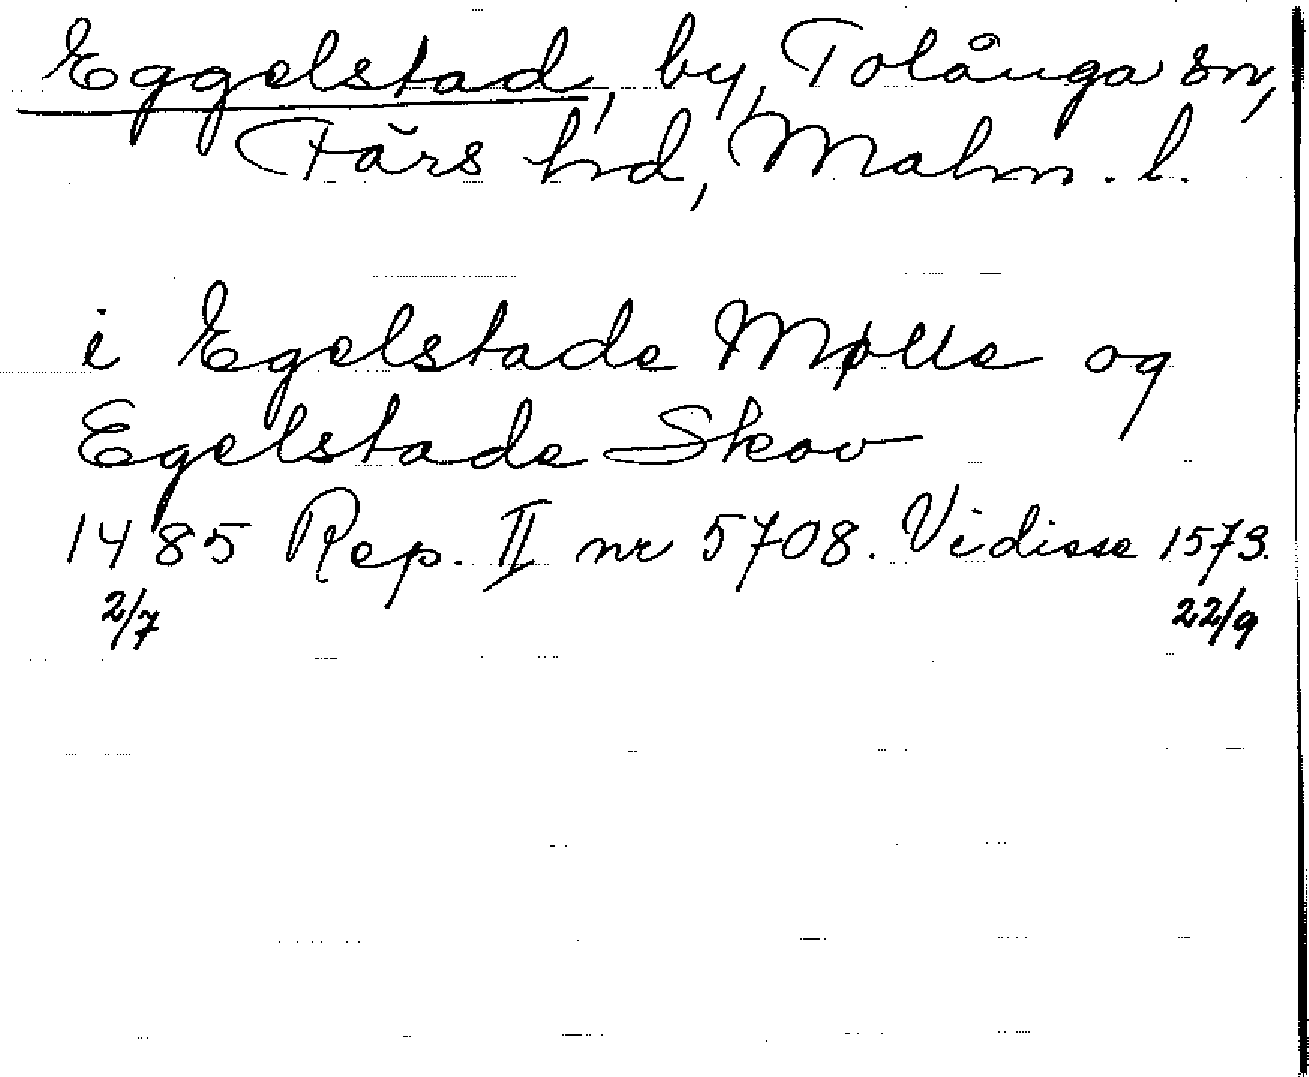 Eggelstad, by, Tolånga sn,
Färs hd, Malm. l.
i Egelstade Mølle og
Egelstade Skov
1485 Rep. II nr 5708. Vidisse 1573.
2/7 22/9